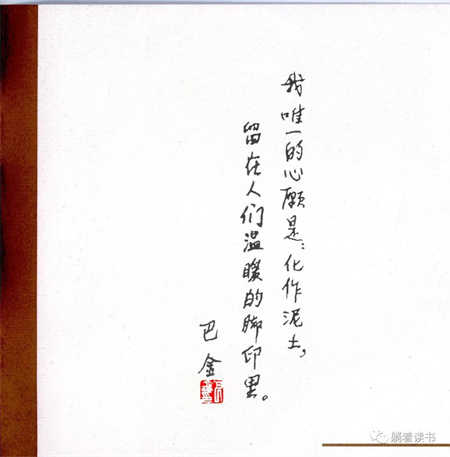 我唯一的心愿是：化作泥土，
留在人们温暖的脚印里。
巴金
躺着读书